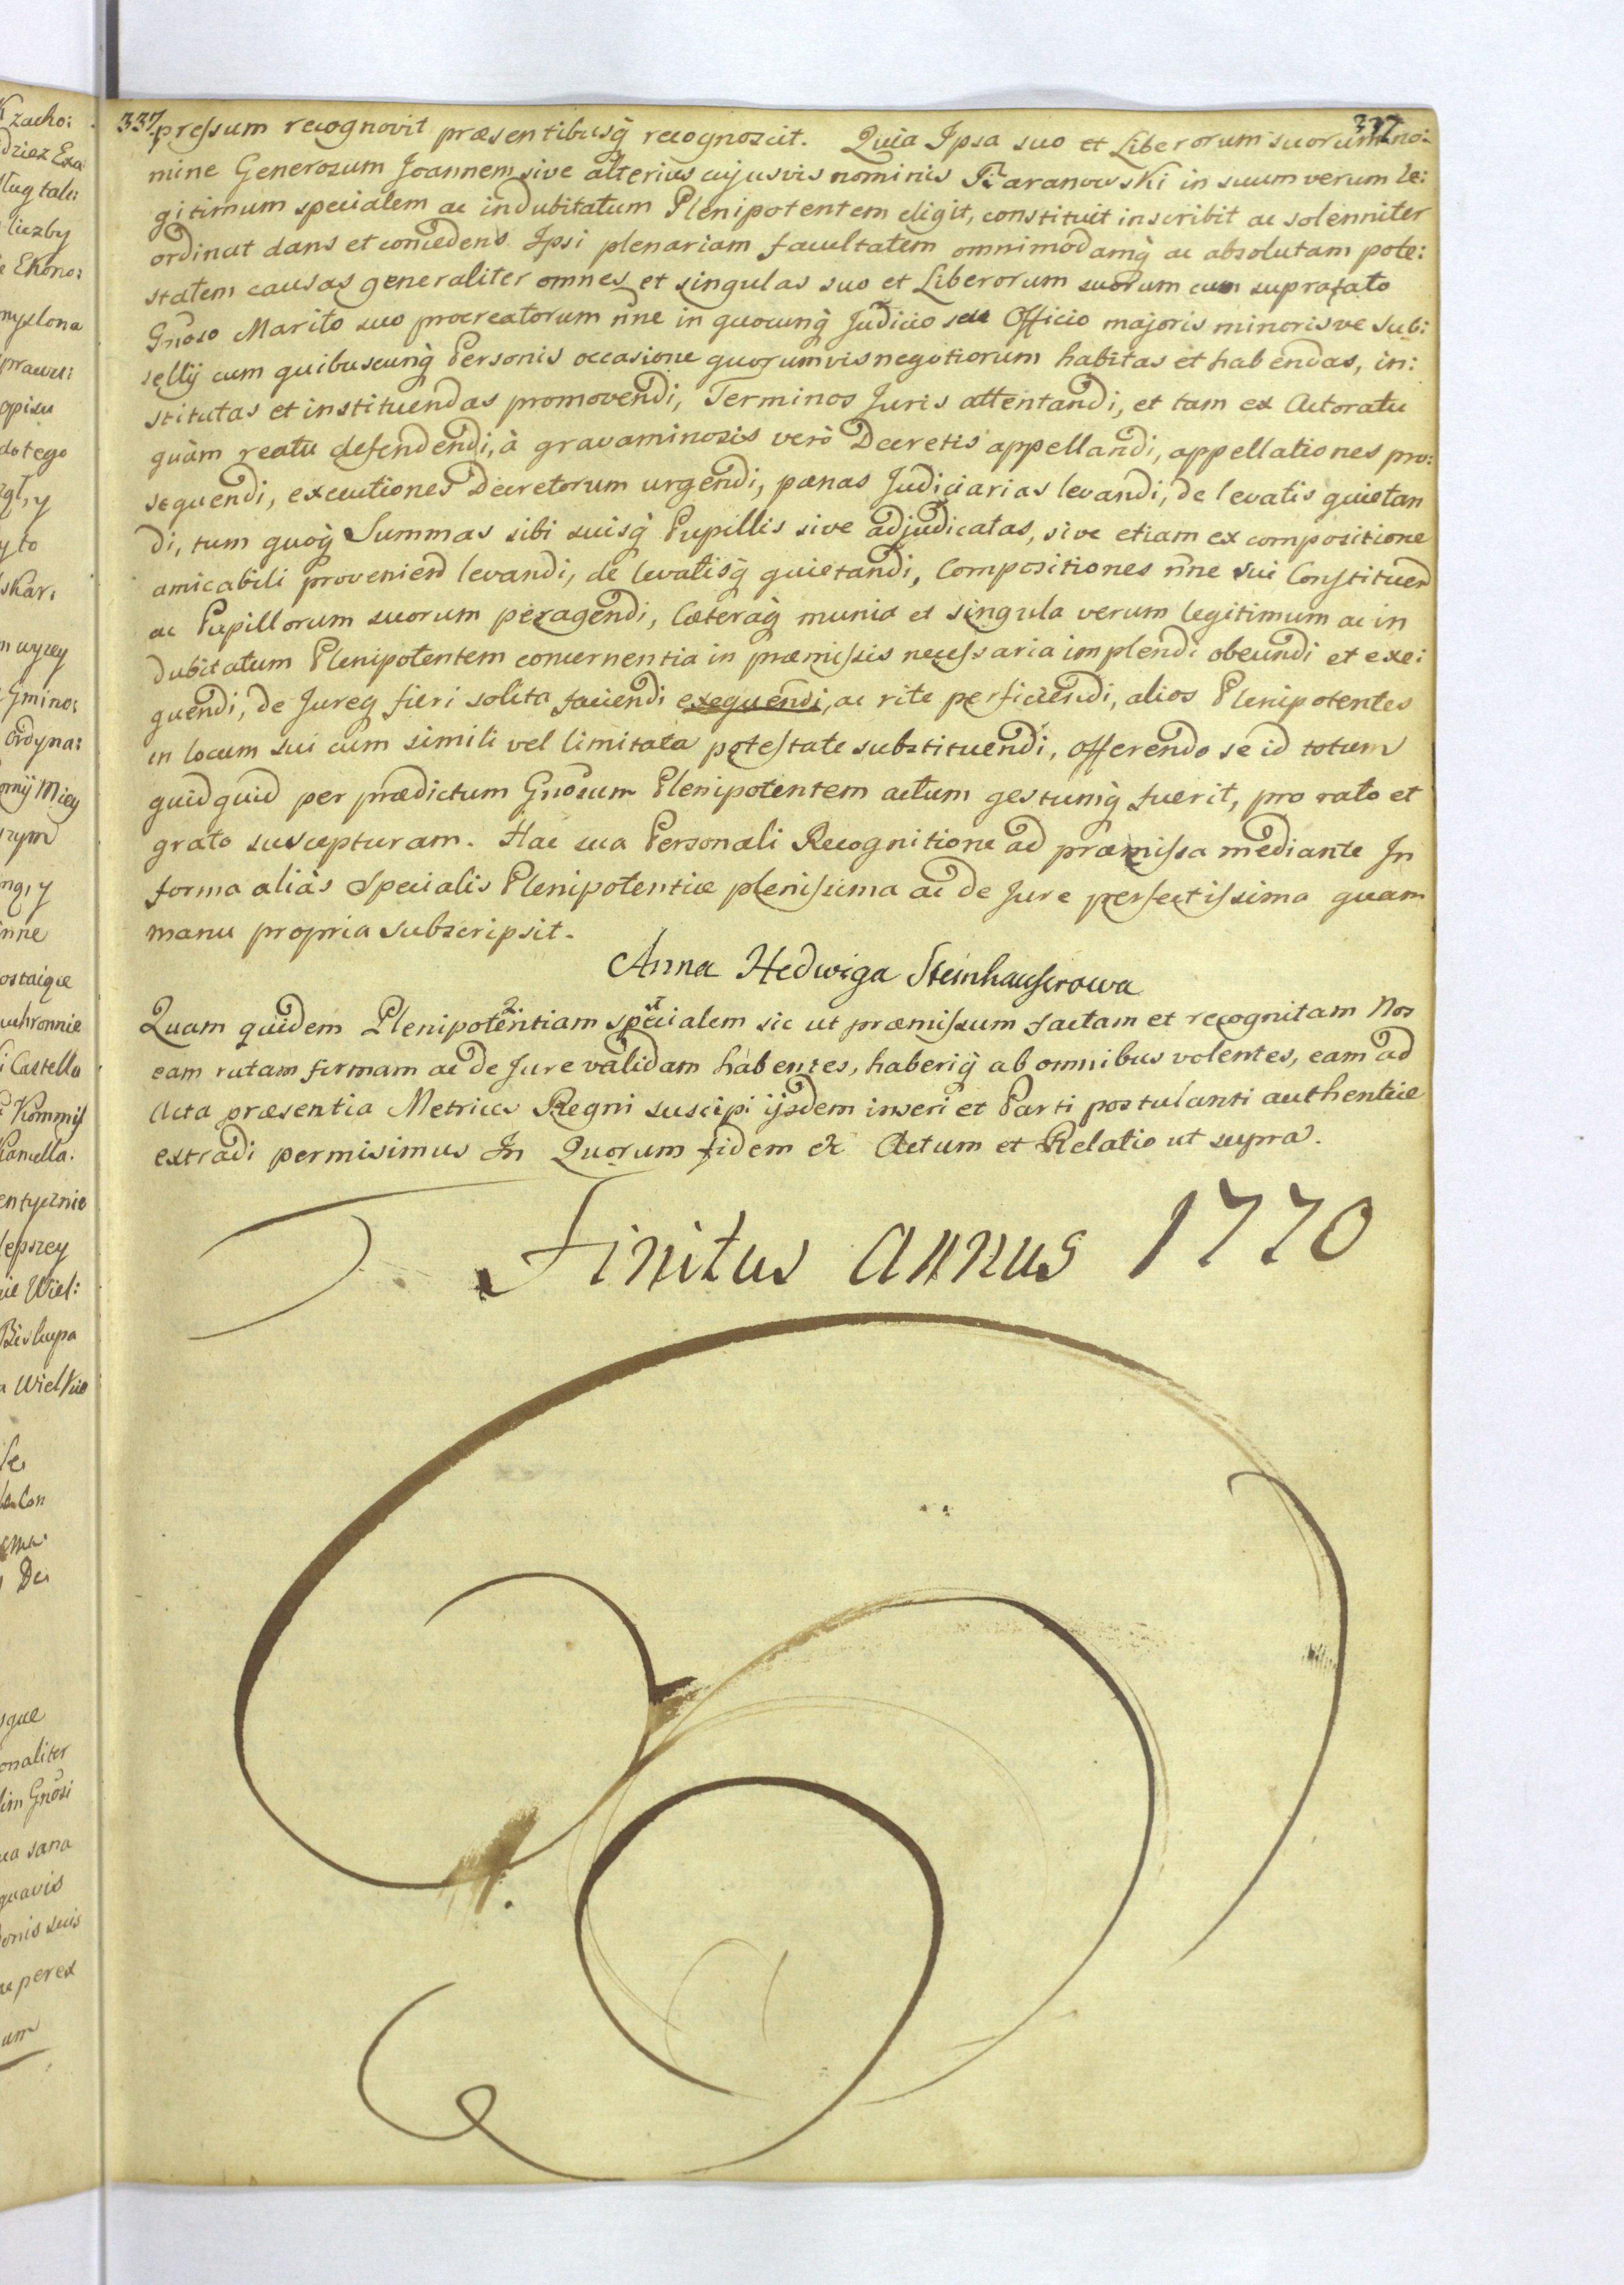 337 337
pressum recognovit præsentibusq̀ recognoscit. Quia Ipsa suo et Liberorum suorum no:
mine Generosum Joannem sive alterius cujusvis nominis Baranowski in suum verum le:
gitimum specialem ac indubitatum Plenipotentem eligit, constituit inscribit ac solenniter
ordinat dans et concedens Ipsi plenariam facultatem omnimodamq̀ ac absolutam pote:
statem causas generaliter omnes et singulas suo et Liberorum suorum cum suprafato
Gnoso Marito suo procreatorum nne in quocunq̀ Judicio seu Officio majoris minorisve Sub:
sellij cum quibuscunq̀ Personis occasione quorumvis negotiorum habitas et habendas, in:
stitutas et instituendas promovendi, Terminos Juris attentandi, et tam ex Actoratu
quàm reatu defendendi, à gravaminosis verò Decretis appellandi, appellationes pro:
sequendi, executiones Decretorum urgendi, pænas Judiciarias levandi, de levatis quietan
di, tum quoq̀ Summas sibi suisq̀ Pupillis sive adjudicatas, sive etiam ex compositione
amicabili provenien levandi, de levatisq̀ quietandi, Compositiones nne sui Constituen
ac Pupillorum suorum peragendi, Cæteraq̀ munia et singula verum legitimum ac in
dubitatum Plenipotentem concernentia in præmissis necessaria implendi obeundi et exe:
quendi, de Jureq fieri solita faciendi exequendi, ac rite perficiendi, alios Plenipotentes
in locum sui cum simili vel limitata potestate substituendi, offerendo se id totum
quidquid per prædictum Gnosum Plenipotentem actum gestumq̀ fuerit, pro rato et
grato suscepturam. Hac sua Personali Recognitione ad præmissa mediante In
forma aliàs Specialis Plenipotentiæ plenissima ac de Jure perfectissima quam
manu propria subscripsit.
Anna Hedwiga Steinhauserowa
Quam quidem Plenipotentiam specialem sic ut præmissum factam et recognitam Nos
eam ratam firmam ac de Jure validam habentes, haberiq̀ ab omnibus volentes, eam ad
Acta præsentia Metrices Regni suscipi ijsdem inseri et Parti postulanti authentice
extradi permisimus In Quorum fidem &c Actum et Relatio ut supra.
Finitus annus 1770